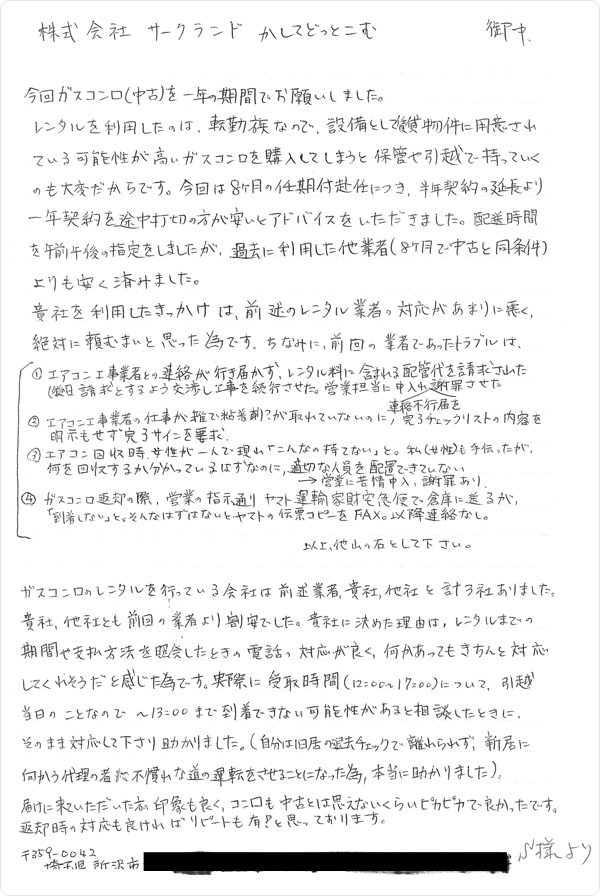 株式会社 サークランド かしてどっとこむ 御中.
今回ガスコンロ(中古)を一年の期間でお願いしました。
レンタルを利用したのは、転勤族なので、設備として賃貸物件に用意され
ている可能性が高いガスコンロを購入してしまうと保管や引越で持っていく
のも大変だからです。今回は8ヶ月の任期付赴任につき、半年契約の延長より
一年契約を途中打切の方が安いとアドバイスをいただきました。配送時間
を午前午後の指定をしましたが、過去に利用した他業者(8ヶ月で中古と同条件)
よりも安く済みました。
貴社を利用したきっかけは、前述のレンタル業者の対応があまりに悪く、
絶対に頼むまいと思った為です。ちなみに、前回の業者であったトラブルは、
① エアコン工事業者との連絡が行き届かず、レンタル料に含まれる配管代を請求された
(後日請求とするよう交渉し工事を続行させた。営業担当に申入れ謝罪させた
連絡不行届を
② エアコン工事業者の仕事が雑で粘着剤?が取れていないのに、完了チェックリストの内容を
明示もせず完了サインを要求.
③ エアコン回収時、女性が一人で現れ「こんなの持てない」と。私(女性)も手伝ったが、
何を回収するか分かっているはずなのに、適切な人員を配置できていない
→ 営業に苦情申入、謝罪あり.
④ ガスコンロ返却の際、営業の指示通りヤマト運輸家財宅急便で倉庫に送るが、
「到着しない」と。そんなはずはないとヤマトの伝票コピーをFAX。以降連絡なし。
以上、他山の石として下さい。
ガスコンロのレンタルを行っている会社は前述業者、貴社、他社と計3社ありました。
貴社、他社とも前回の業者より割安でした。貴社に決めた理由は、レンタルまでの
期間や支払方法を照会したときの電話の対応が良く、何かあってもきちんと対応
してくれそうだと感じた為です。実際に受取時間(12:00〜17:00)について、引越
当日のことなので〜13:00まで到着できない可能性があると相談したときに、
そのまま対応して下さり助かりました。(自分は旧居の退去チェックで離れられず、新居に
向かう代理の者が不慣れな道の運転をさせることになった為、本当に助かりました)。
届けに来ていただいた方の印象も良く、コンロも中古とは思えないくらいピカピカで良かったです。
返却時の対応も良ければリピートも有?と思っております。
〒359-0042
埼玉県所沢市 様より